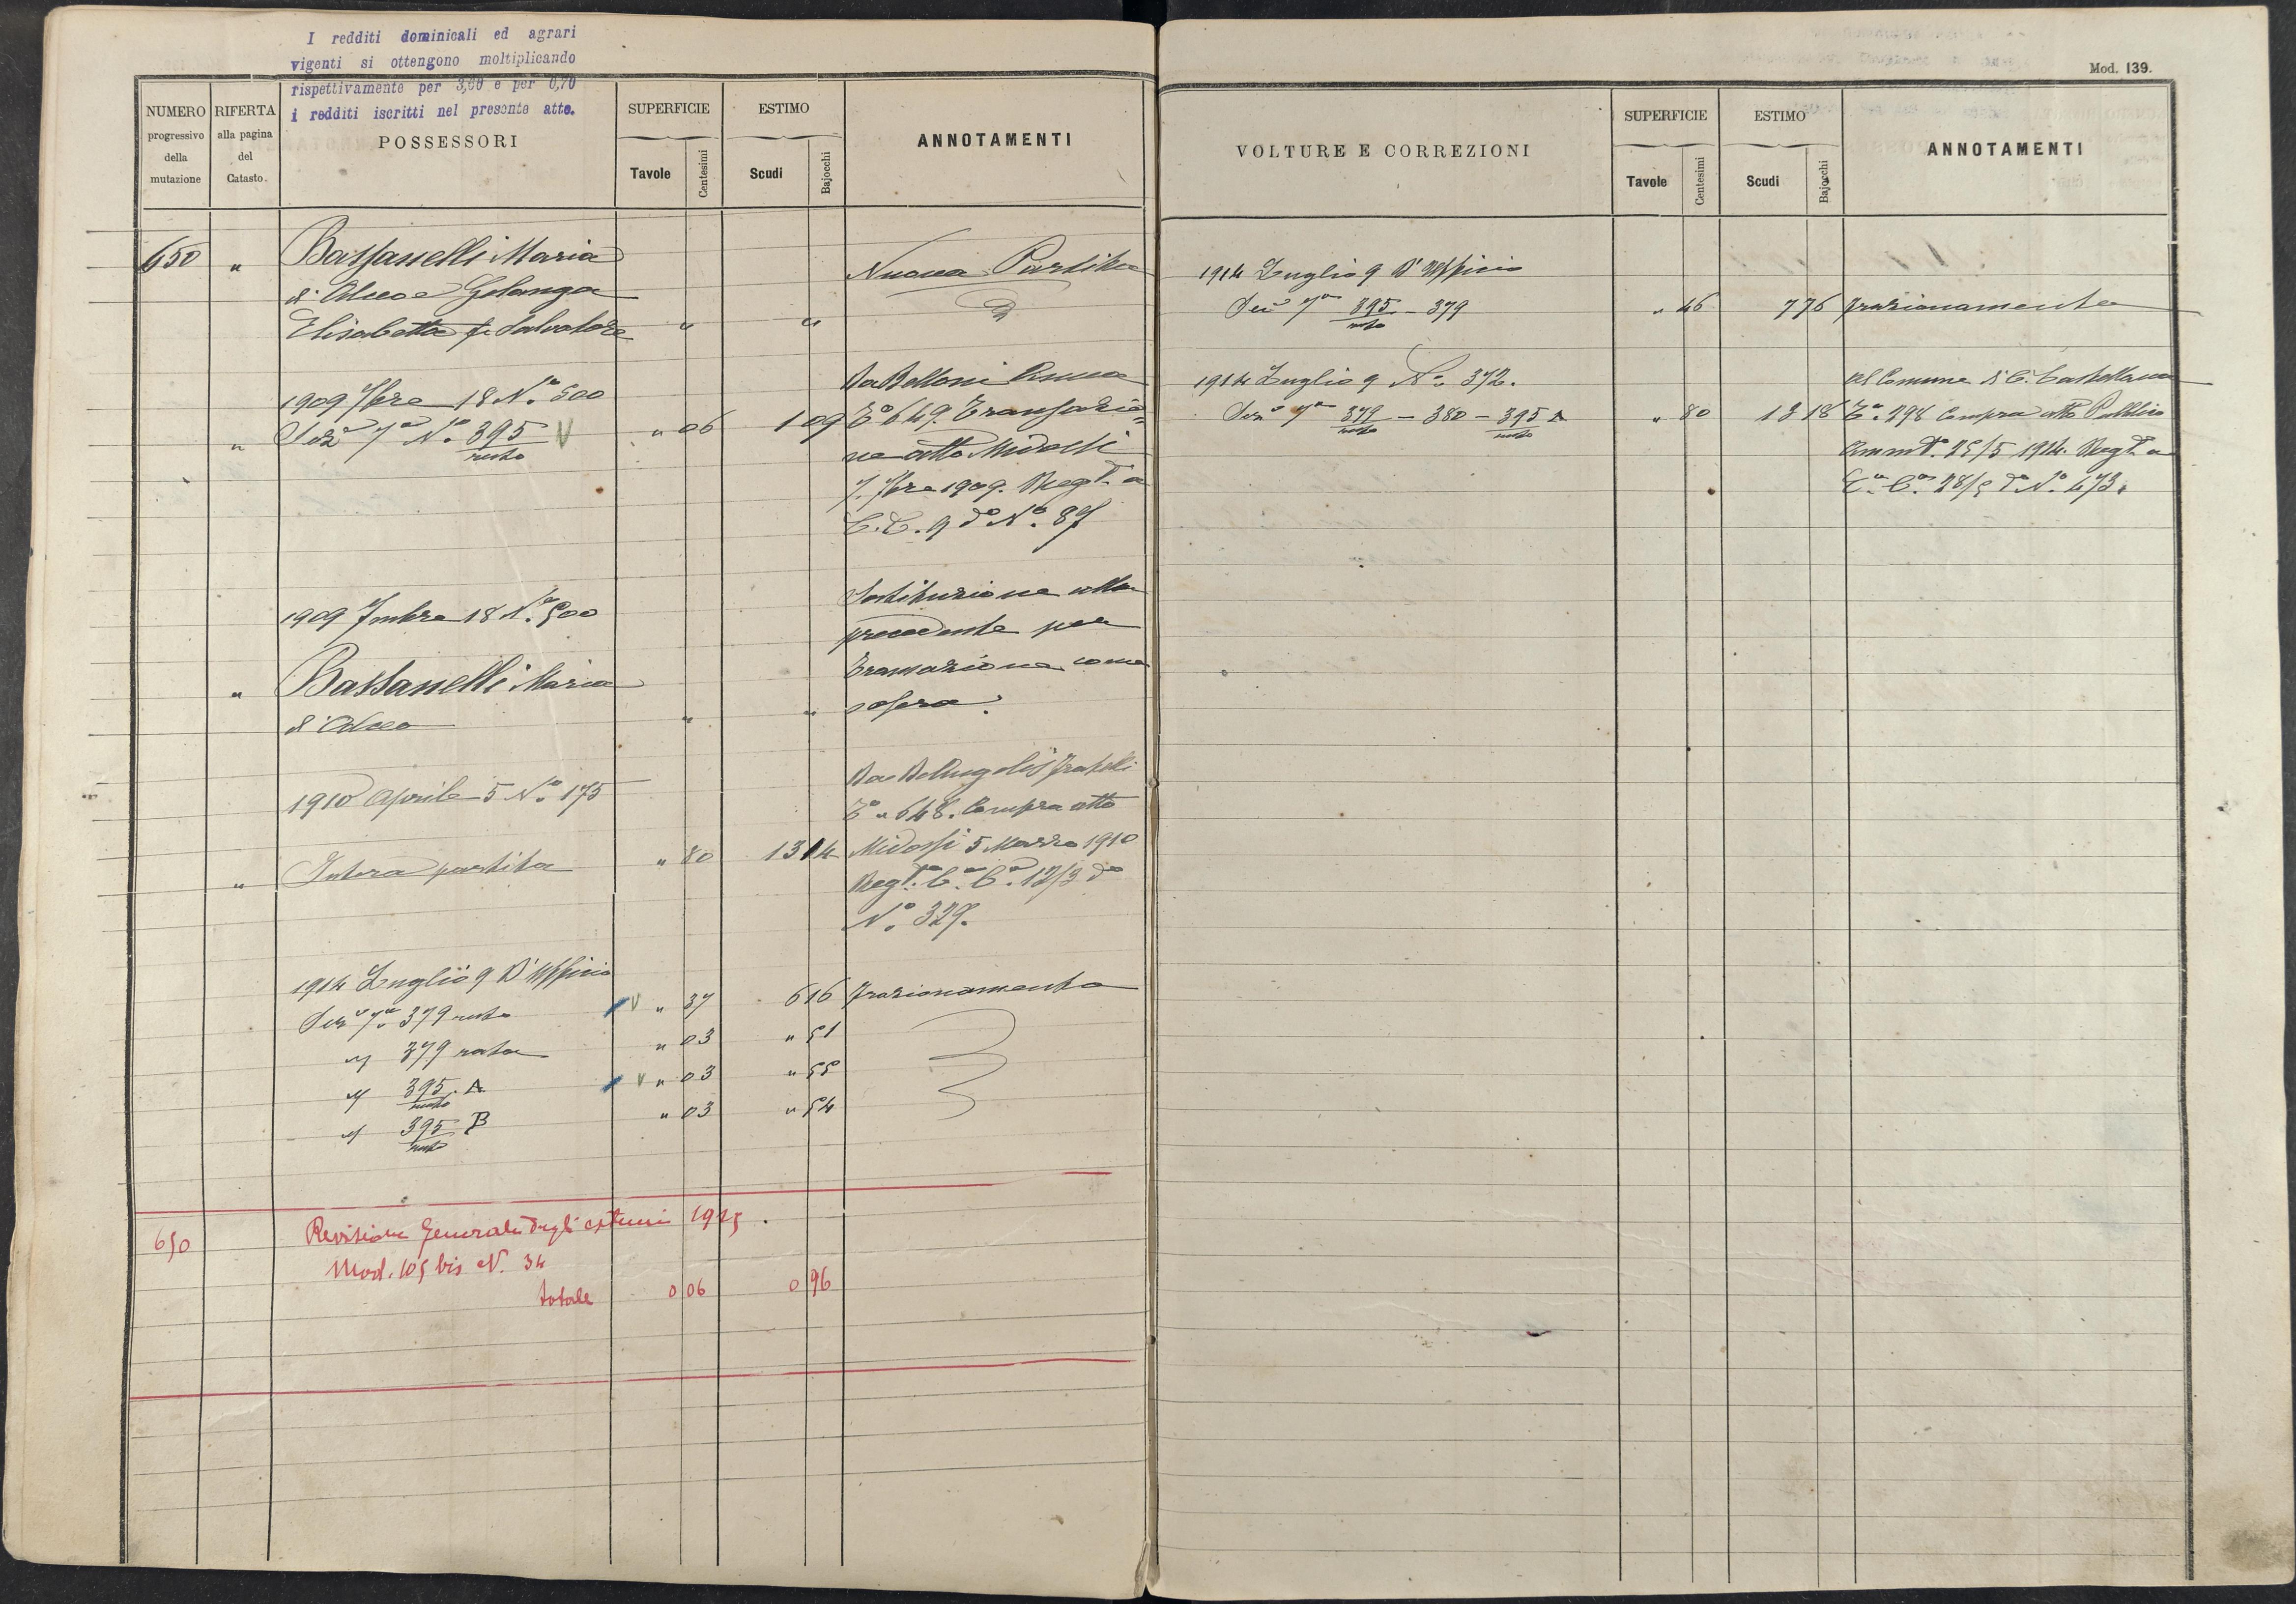 I redditi dominicali ed agrari
vigenti si ottengono moltiplicando
rispettivamente per 3,60 e per 0,70
i redditi iscritti nel presente atto.
NUMERO progressivo della mutazione
RIFERTA alla pagina del Catasto.
POSSESSORI
SUPERFICIE
Tavole Centesimi
ESTIMO
Scudi Bajocchi
ANNOTAMENTI
650 " Bassanelli Maria
di Alceo e
Elisabetta fu Salvatore " "
Nuova Partita
1909 7bre 18 N.º 500
" Sezº 7ª N.º 395 resto V " 06 1 09
Da Belloni Anna
Tº 649. Transazio=
ne atto Midossi
7. 7bre 1909. Regtº a
C. C. 9 dº Nº. 87
1909 7mbre 18 N.º 500
" Bassanelli Maria
di Alceo " "
Sostituzione alla
precedente per
transazione come
sopra.
1910 Aprile 5 N.º 175
" Intera partita " 80 13 14
Da Delangelis fratelli
Tº " 648. Compra atto
Midossi 5 Marzo 1910
Regtº. Cª. Cª. 12/3 dº
Nº. 329.
1914 Luglio 9 D'Uffizio
Sezº 7ª 379 resto V " 37 6 16 frazionamento
" 379 rata " 03 " 51
" 395 resto A V " 03 " 55
" 395 resto B " 03 " 54
650 Revisione Generale degli estimi 1925.
Mod. 105 bis N. 34
totale 0 06 0 96
Mod. 139.
VOLTURE E CORREZIONI
SUPERFICIE
Tavole Centesimi
ESTIMO
Scudi Bajocchi
ANNOTAMENTI
1914 Luglio 9 D'Uffizio
Sezº 7ª 395 resto - 379 " 46 7 76 frazionamento
1914 Luglio 9 Nº. 372.
Sezº 7ª 379 resto - 380 - 395 resto A " 80 13 18
Al Comune di C. Castellana
Tº. 298 Compra atto Pubblico
Ammº. 25/5 1914. Regtº a
Cª. Cª. 28/5 dº Nº. 473.